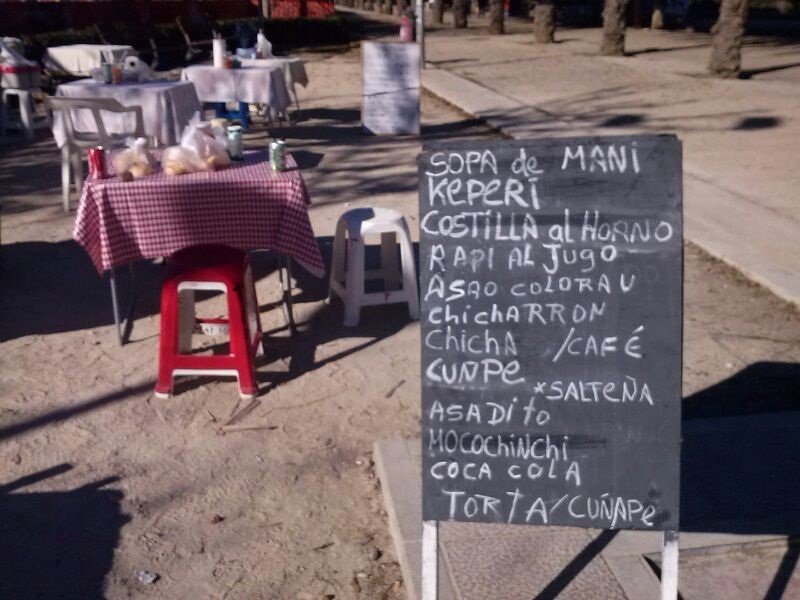 SOPA de MANI
KEPERI
COSTILLA al HORNO
RAPI AL JUGO
ASAO COLORAU
chichARRON
CHICHA /CAFÉ
CUNPE
*SALTEÑA
ASADITO
MOCOCHINCHI
COCA COLA
TORTA/CUÑAPE